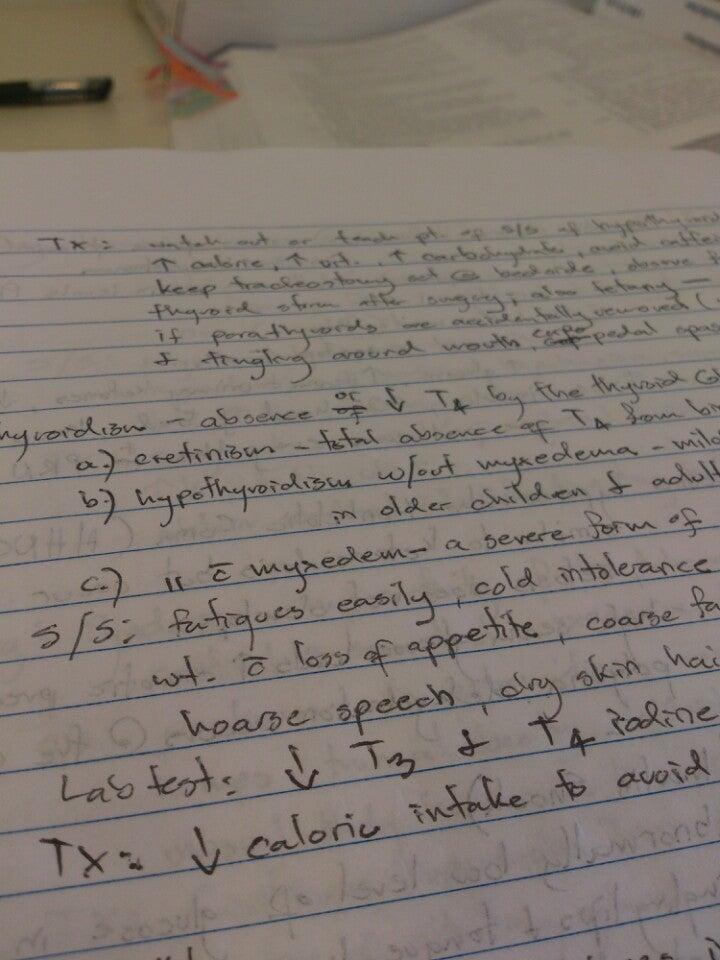 Tx: watch out or teach pt. of s/s of hypothyroid
↑ calorie, ↑ vit. ↑ carbohydrate, avoid caffe
keep tracheostomy set @ bedside, observe f
thyroid storm after surgery; also tetany —
if parathyroids are accidentally removed (
& tingling around mouth, carpopedal spas
hyroidism - absence or ↓ T4 by the thyroid gl
a.) cretinism - total absence of T4 from bi
b.) hypothyroidism w/out myxedema - mild
in older children & adult
c.) " c̄ myxedem- a severe form of
S/S: fatigues easily, cold intolerance
wt. c̄ loss of appetite, coarse fa
hoarse speech, dry skin hai
Lab test: ↓ T3 & T4 iodine
Tx: ↓ caloric intake to avoid